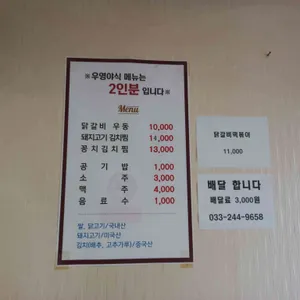 ※우영야식 메뉴는
2인분 입니다※
Menu
닭갈비 우동 10,000
돼지고기 김치찜 14,000
꽁치김치찜 13,000
공기밥 1,000
소주 3,000
맥주 4,000
음료수 1,000
쌀, 닭고기/국내산
돼지고기/미국산
김치(배추, 고추가루)/중국산
닭갈비떡볶이
11,000
배달 합니다
배달료 3,000원
033-244-9658